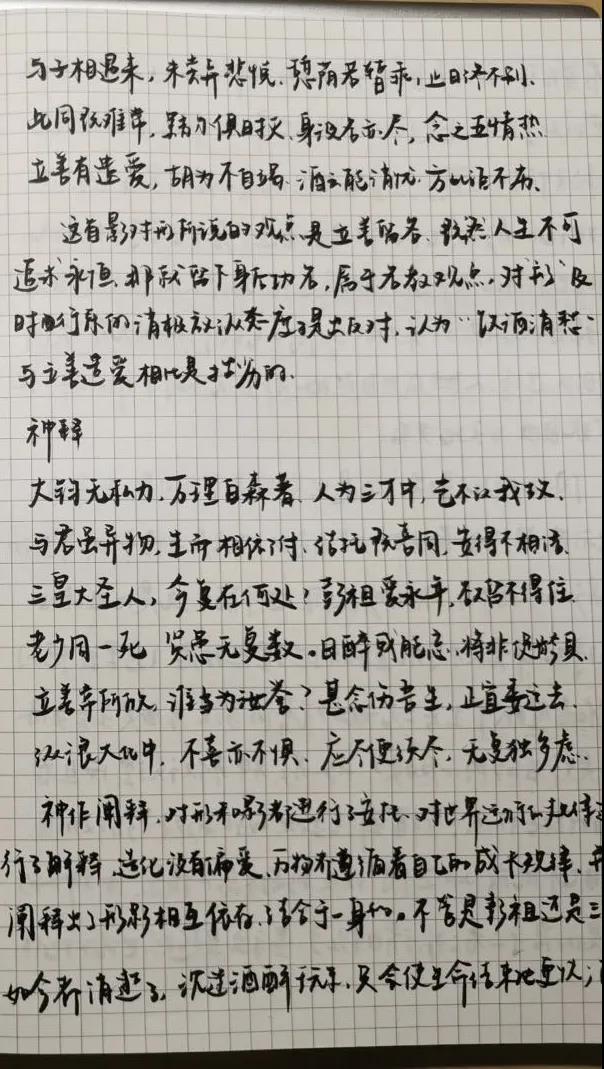 与子相遇来，未尝异悲悦。憩荫若暂乖，止日终不别。
此同既难常，黯尔俱时灭。身没名亦尽，念之五情热
立善有遗爱，胡为不自竭 酒云能消忧 方此讵不劣、
这首影对形所说的观点是立善留名 既然人生不可
追求永恒 那就留下身后功名，属于名教观点，对"形"及
时行乐的消极放纵态度提出反对，认为"饮酒消愁"
与立善遗爱相比是拙劣的、
神释
大钧无私力，万理自森著 人为三才中，岂不以我故、
与君虽异物，生而相依附、结托既喜同，安得不相语
三皇大圣人，今复在何处？彭祖爱永年，欲留不得住
老少同一死 贤愚无复数。日醉或能忘，将非促龄具
立善常所欣，谁当为汝誉？甚念伤吾生，正宜委运去、
纵浪大化中，不喜亦不惧、应尽便须尽，无复独多虑
神作阐释，对形和影都进行了 对世界运行的规律
行了解释 造化没有偏爱，万物有遵循着自己的成长规律，并
阐释出了形影相互依存，结合于一身的。不管是彭祖还是三
如今都消逝了，沉迷酒醉于玩乐，只会使生命结束地更快；